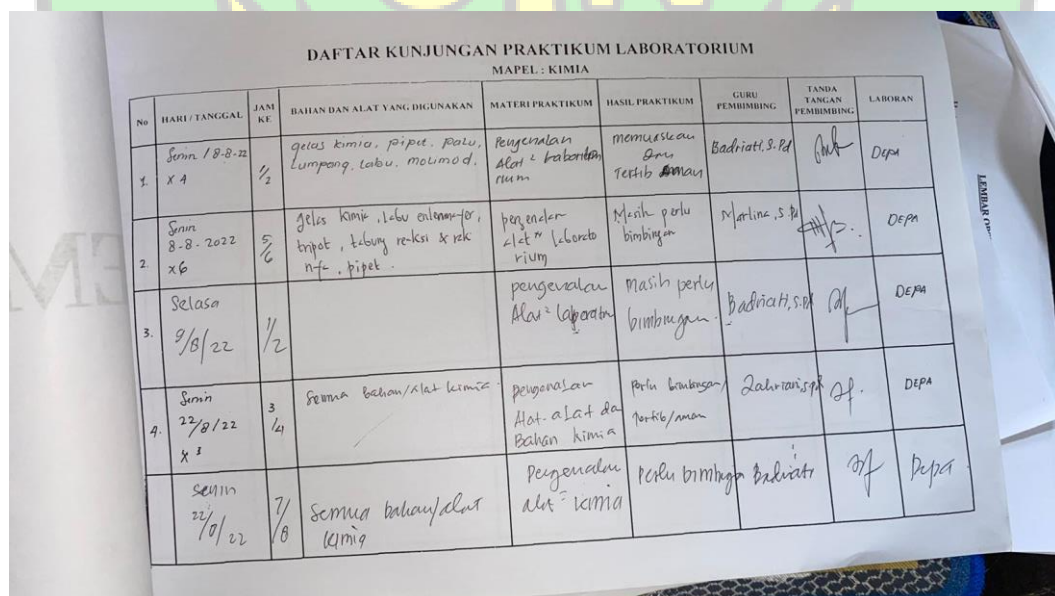 DAFTAR KUNJUNGAN PRAKTIKUM LABORATORIUM
MAPEL : KIMIA
No
HARI / TANGGAL
JAM KE
BAHAN DAN ALAT YANG DIGUNAKAN
MATERI PRAKTIKUM
HASIL PRAKTIKUM
GURU PEMBIMBING
TANDA TANGAN PEMBIMBING
LABORAN
1.
Senin / 8-8-22
X 4
1/2
gelas kimia, pipet, palu,
Lumpang, Labu,
Pengenalan
Alat²
memuaskan
Tertib Aman
Badriati, S.Pd
Depa
2.
Senin
8-8-2022
X6
5/6
gelas kimia, labu
tripot, tabung reaksi & rak
pipet.
Laborato
rium
Masih perlu
bimbingan
Martina, S.Pd
DEPA
3.
Selasa
9/8/22
1/2
pengenalan
Alat²
masih perlu
bimbingan.
Badriati, S.Pd
DEPA
4.
Senin
22/8/22
X 3
3/4
Semua Bahan/Alat kimia
pengenalan
Alat-alat da
Bahan kimia
Perlu bimbingan/
Tertib/aman
DEPA
senin
22/8/22
7/8
Semua bahan/alat
kimia
Pengenalan
alat² kimia
Perlu bimbingan
Badriati
Depa
LEMBAR